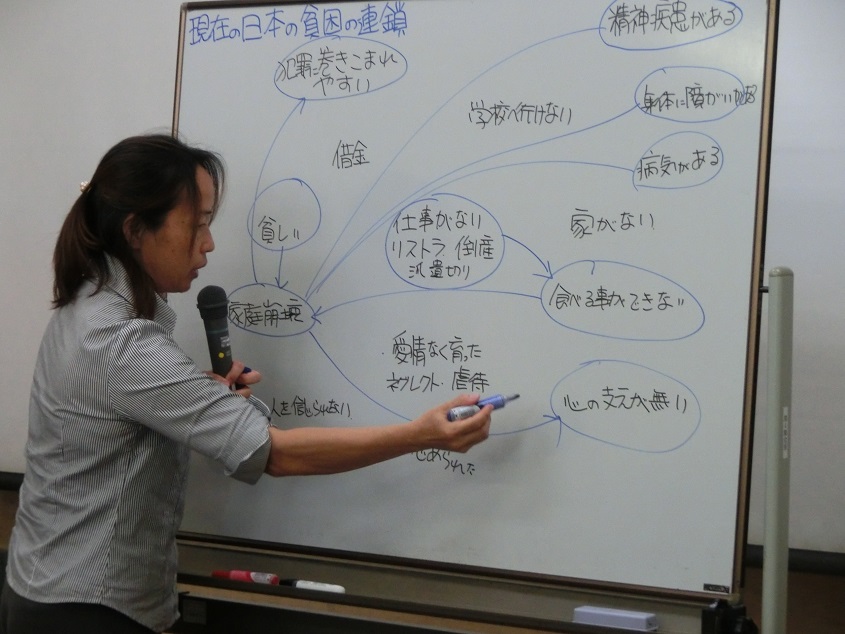 現在の日本の貧困の連鎖
精神疾患がある
犯罪に巻きこまれ
やすい
身体に障がいがある
学校へ行けない
借金
病気がある
貧しい
仕事がない
リストラ 倒産
派遣切り
家がない
食べる事ができない
家庭崩壊
愛情なく育った
ネグレクト・虐待
心の支えが無い
人を信じられない